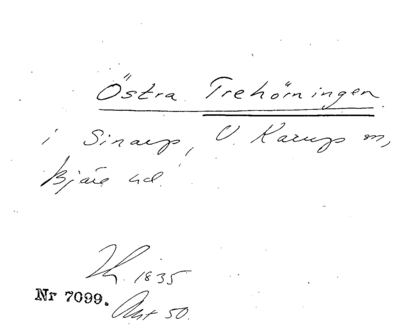 Östra Trehörningen
i Sinarp, V. Karup sn,
Bjäre hd.
1835
Nr 7099. Akt 50.